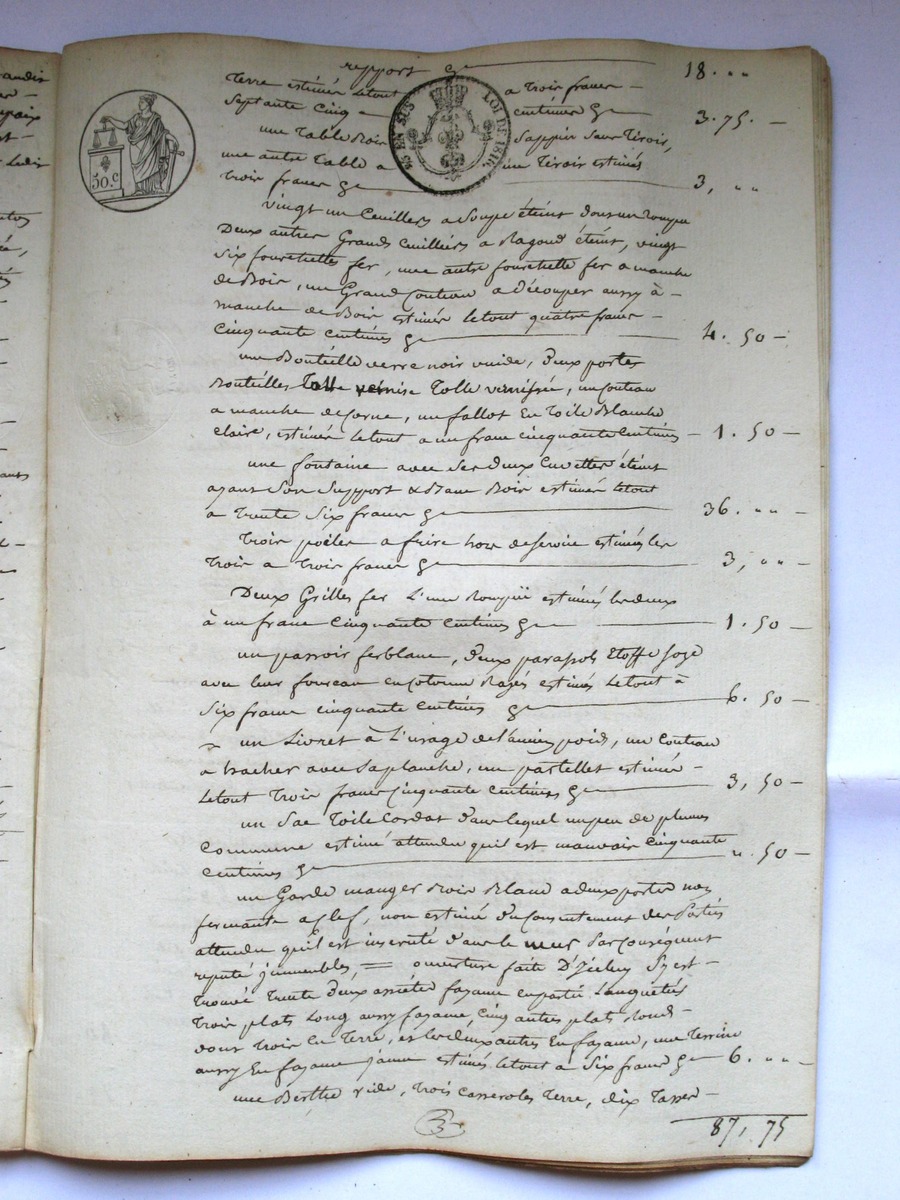 report 18. ''
terre estimés letout a trois francs
septante cinq centimes 3. 75. –
une table Bois Sappin sans tiroir,
une autre table a un tiroir estimés
trois francs 3, ''
vingt un Ceuillers a Soupe éteint dont un rompu
Deux autres Grands Cuillers a Ragoud éteint, vingt
Six fourchettes fer, une autre fourchette fer a manche
de Bois, un Grand Couteau a découper aussy à –
manche de Bois estimés letout quatre francs –
Cinquante Centimes 4. 50 –
une Bouteille verre noir vuide, deux portes
Bouteilles Tolle vernissée, un Couteau
a manche de Corne, un fallot En toile Blanche
claire, estimés letout a un franc cinquante Centimes – 1. 50 –
une fontaine avec ses deux Cuvettes éteint
ayant Son Support & Banc Bois estimés letout
a trente Six francs 36. '' –
Trois poëles a frire hors de service estimés les
trois a trois francs 3, '' –
Deux Grilles fer l'une Rompüe estimés les deux
à un franc Cinquante Centimes 1. 50 –
un passoir ferblanc, deux parasols Etoffe soye
avec leur foureau en Cotonne Rayés estimés letout à
Six francs cinquante Centimes 6. 50 –
un Livret à l'usage de l'ancien poid, un Couteau
a hacher avec Saplanche, un pastellet estimés –
letout trois francs Cinquante Centimes 3, 50 –
un Sac Toile Cordat dans lequel un peu de plumes
Commune estimé attendu qu'il est mauvais Cinquante
Centimes ''. 50 –
un Garde manger Bois Blanc a deux portes non
fermante a Clef, non estimé du Consentement des Parties
attendu qu'il est incrusté dans le mur Par Conséquent
reputé immeubles, = ouverture faite D'Icelluy S'y est –
Trouvé trente deux assiétes fayance en partie
trois plats long aussy fayance, Cinq autres plats Rond –
dont trois En Terre, et les deux autres En fayance, une Terrine
aussy En fayance jaune estimés letout a Six francs 6. '' –
une Berthe vide, trois Casseroles terre, dix Tasses –
87, 75
3
50.c
LOI DE 1816
25 EN SUS